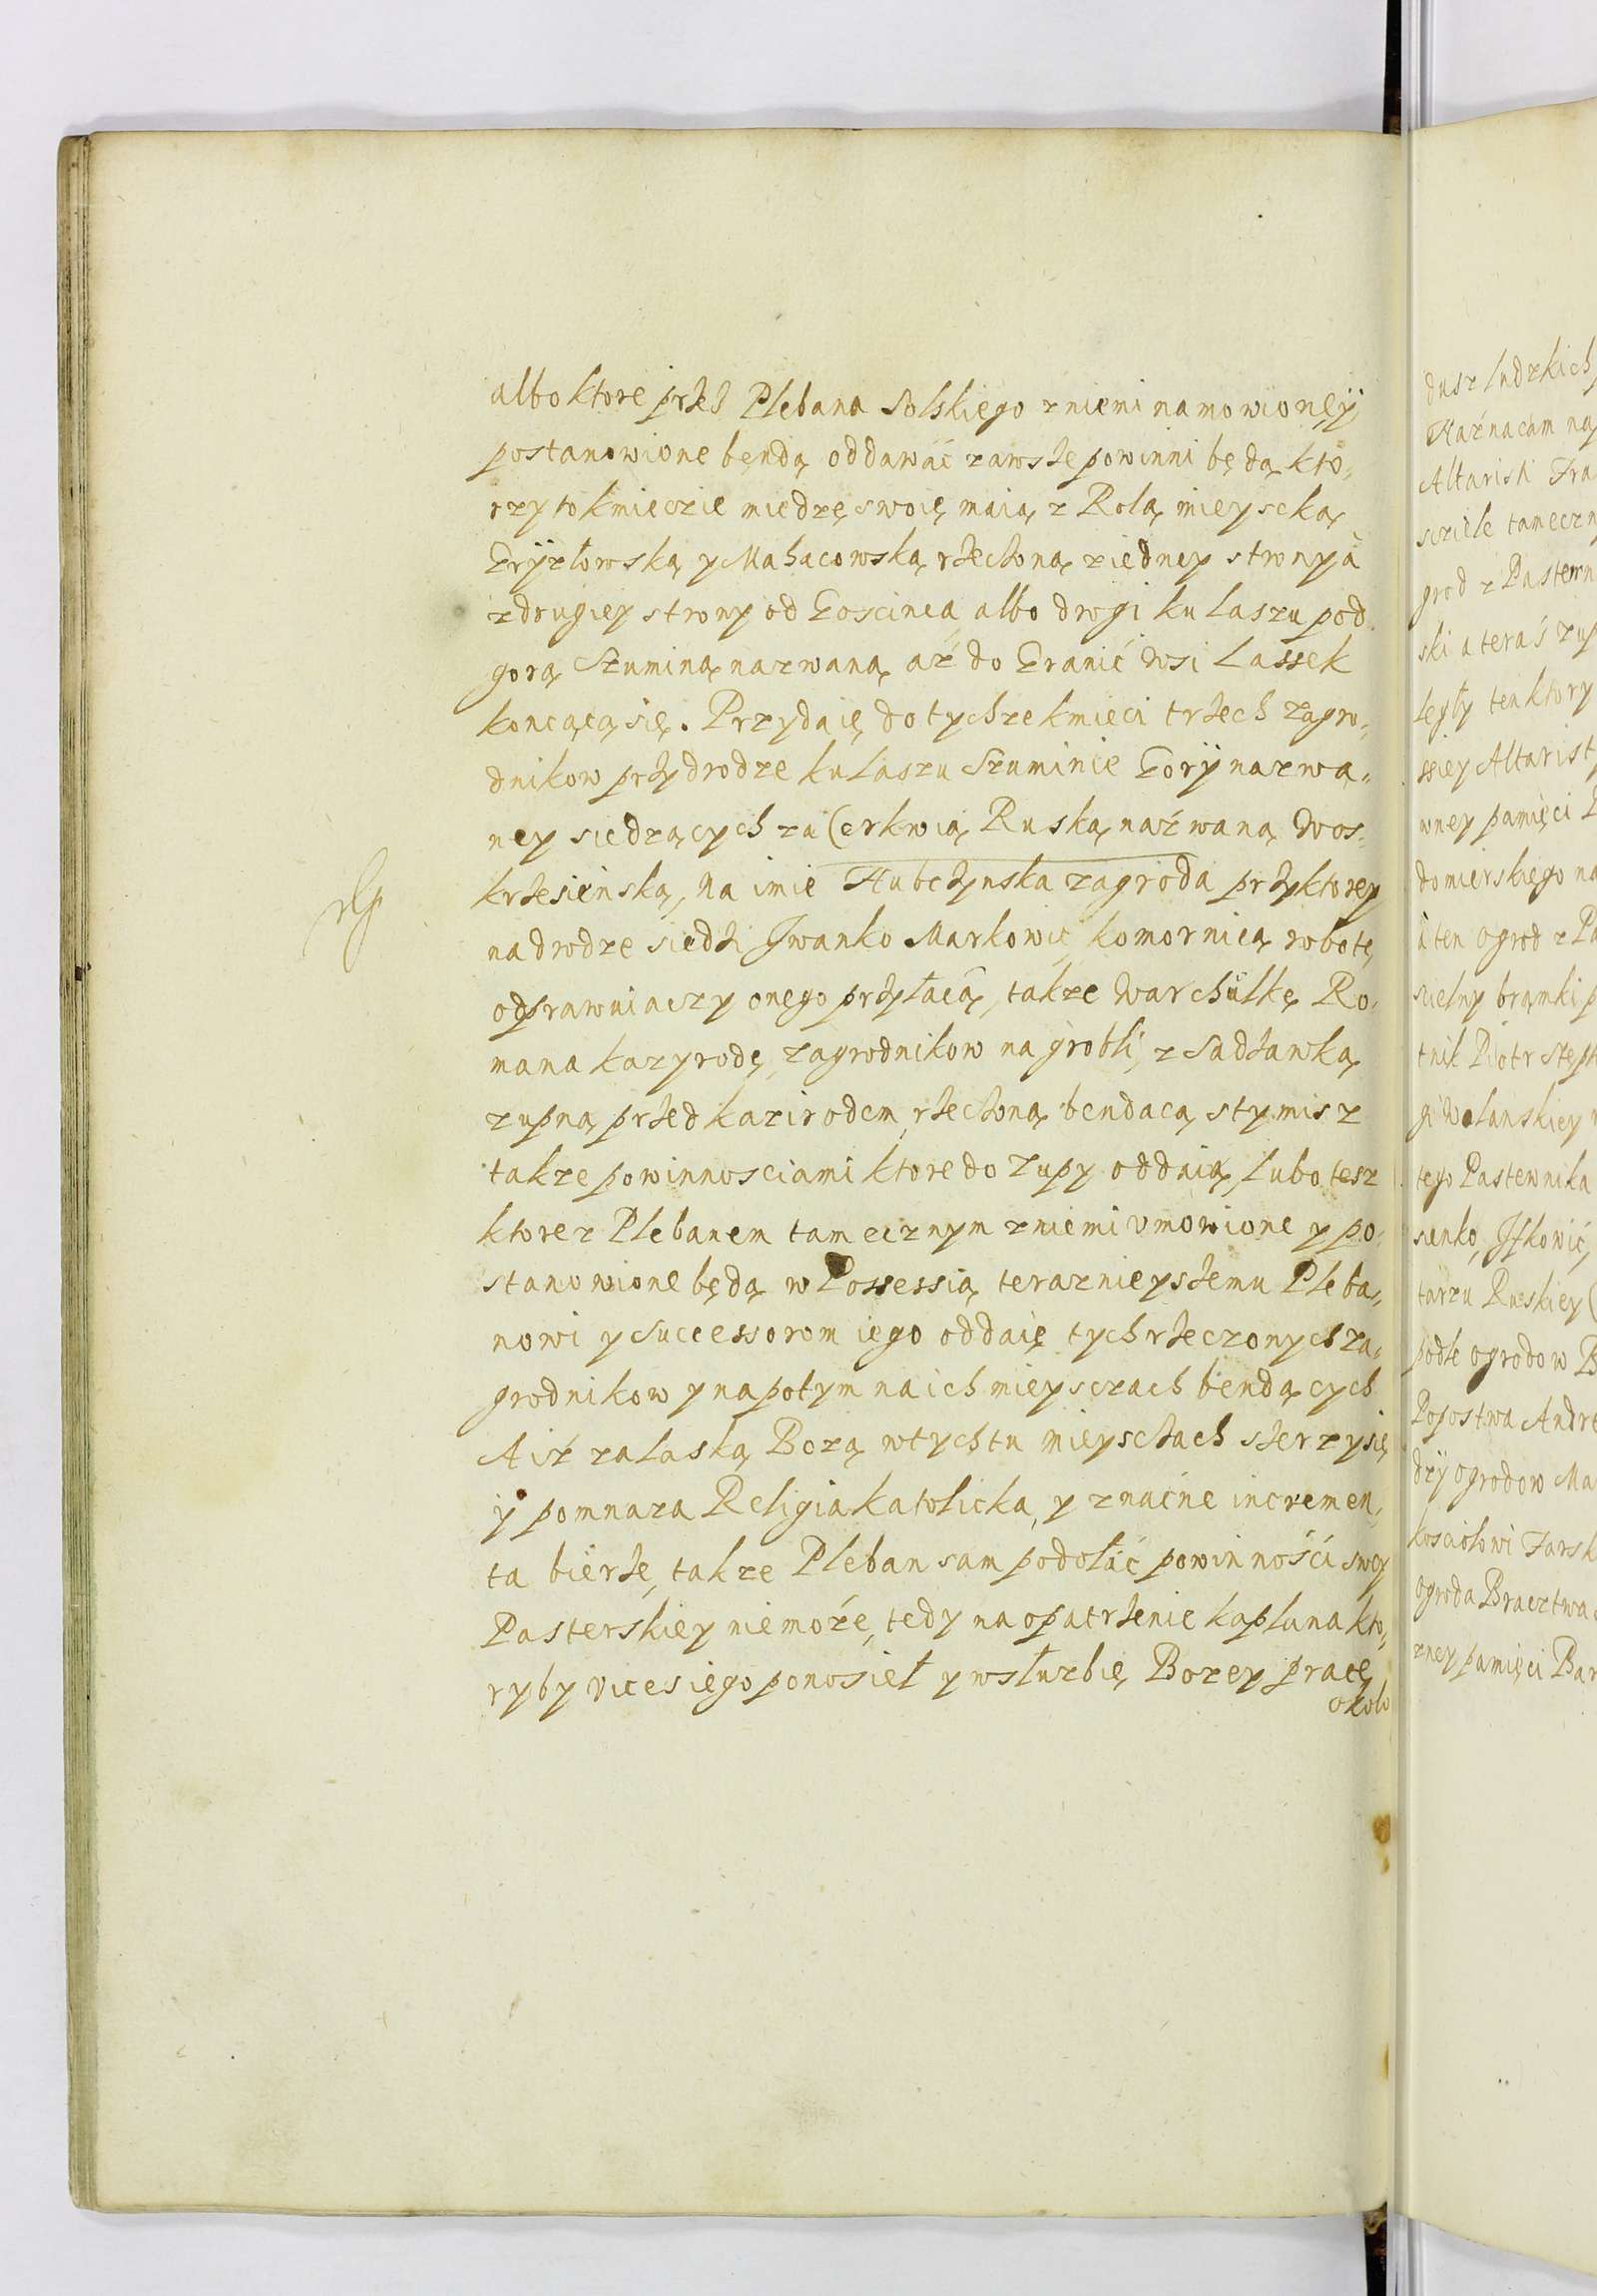 albo ktore przes Plebana Solskiego z niemi namowione ÿ
postanowione bęndą oddawać zawsze powinni będą kto,
rzy to kmieczie miedzę swoię maią z Rolą mieyscką
Gryzłowską y Mahacowską rzeczoną z iedney strony à
z drugiey strony od Goscinca albo drogi ku Laszu pod
gorą Szuminą nazwaną aż do Granić wsi Lassek
koncącą się. Przydaię do tychze kmieci trzech zagro,
dnikow przy drodze ku Laszu Szuminie Gorÿ nazwa,
ney siedzących za Cerkwią Ruską nazwaną Wos,
krzesieńską, na imie Hubczynska zagroda przy ktorey
na drodze siedzi Iwanko Markowic komornicą robotę
odprawuiaczy onego przyłacą, takze Warchulkę Ro,
mana kazyrodę, zagrodnikow na grobli, z Sadzawką
zupną przed kazirodem rzeczoną bendacą stymisz
takze powinnosciami ktore do Zupy oddaią, lubo tesz
ktore z Plebanem tamecznym z niemi vmowione y po,
stanowione będą w Possessią teraznieyszemu Pleba,
nowi y Successorom iego oddaię tych rzeczonych za,
grodnikow y napotym na ich mieysczach bendących
A isz za Laską Bozą w tych tu mieysczach szerzy się
ÿ pomnaza Religia katolicka, y znaćne incremen,
ta bierze, takze Pleban sam podołać powinności swey
Pasterskiey niemoże, tedy na opatrzenie kapłana kto,
ryby vices iego ponosieł y w służbie Bozey pracę
około
dusz ludzkich
Naznacam na
Altaristi Fra
scziele tameczn
grod z Pastewn
ski a teraś zup
legły ten ktory
ssiey Altarist
wney pamięci
domierskiego na
à ten ogrod z Pa
sielny brąmki p
tnik Piotr Step
gi Wolanskiey
tego Pastewnika
sienko, Ifkowić,
tarzu Ruskiey (
podle ogrodow B
Popostwa Andre
dzÿ ogrodow Ma
kosciołowi Farsk
ogroda Bracztwa
zney pamięci Bar